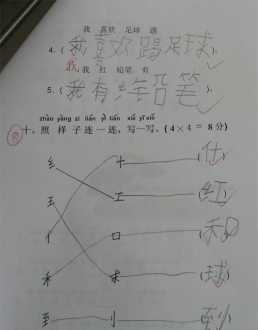 我 喜欢 足球 踢
4.(我喜欢踢足球)
我 我 红 铅笔 有
5.(我有红铅笔).
zhào yàng zi lián yì lián xiě yī xiě
十、照 样 子 连 一 连, 写一写。(4×4 = 8分)
纟 十 (什)
王 工 (红)
亻 口 (和)
禾 求 (球)
至 刂 (到)